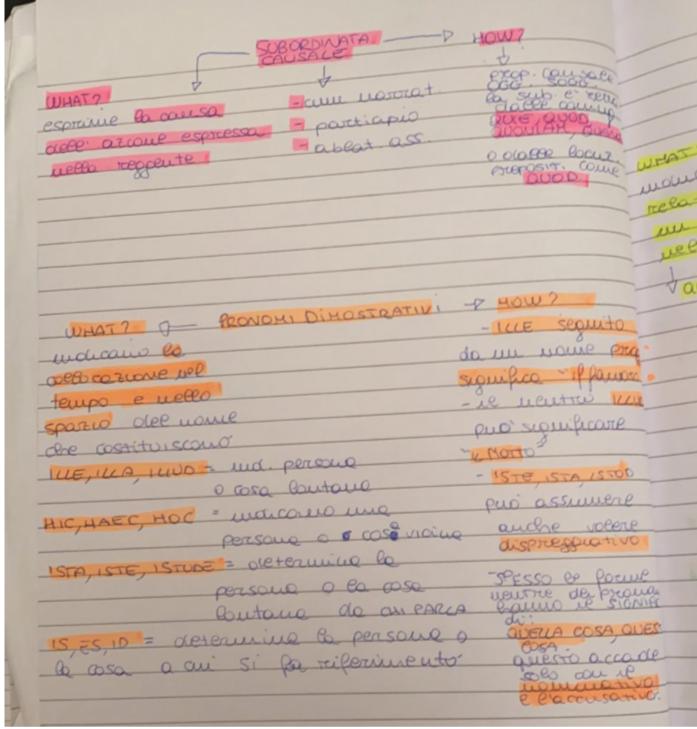 SUBORDINATA CAUSALE
WHAT?
esprime la causa
dell'azione espressa
nella reggente
- cum narrat
- participio
- ablat ass.
HOW?
prop. causale
OGG. SOGG.
la sub. è
dalle cong
QUIA, QUOD
QUONIAM,
o dalle locuz.
preposit. come
QUOD
WHAT
PRONOMI DIMOSTRATIVI
WHAT?
indicano la
collocazione nel
tempo e nello
spazio del nome
che costituiscono
ILLE, ILLA, ILLUD = ind. persona
o cosa lontana
HIC, HAEC, HOC = indicano una
persona o cosa vicina
ISTA, ISTE, ISTUDE = determina la
persona o la cosa
lontana da chi PARLA
IS, ES, ID = determina la persona o
la cosa a cui si fa riferimento
HOW?
- ILLE seguito
da un nome
significa "il famos.
- il neutro ILLU
può significare
"IL MOTTO"
- ISTE, ISTA, ISTOD
può assumere
anche valore
dispreggiativo
- SPESSO le forme
neutre dei pronom
hanno il SIGNIF
di:
QUELLA COSA, QUES
COSA.
questo accade
solo con il
nominativo
e l'accusativo.